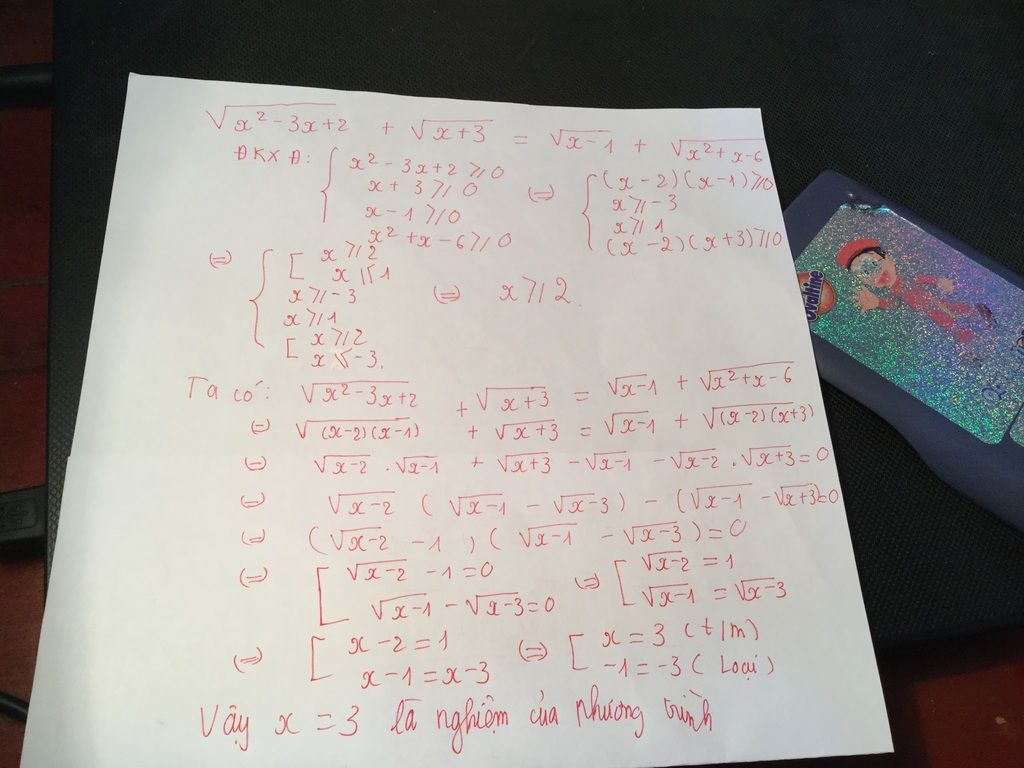 √(x² - 3x + 2) + √(x + 3) = √(x - 1) + √(x² + x - 6)
ĐKXĐ: { x² - 3x + 2 ⩾ 0 (=) { (x - 2)(x - 1) ⩾ 0
x + 3 ⩾ 0 x ⩾ -3
x - 1 ⩾ 0 x ⩾ 1
x² + x - 6 ⩾ 0 (x - 2)(x + 3) ⩾ 0
(=) { [ x ⩾ 2
x ⩽ 1
x ⩾ -3 (=) x ⩾ 2.
x ⩾ 1
[ x ⩾ 2
x ⩽ -3.
Ta có: √(x² - 3x + 2) + √(x + 3) = √(x - 1) + √(x² + x - 6)
(=) √((x - 2)(x - 1)) + √(x + 3) = √(x - 1) + √((x - 2)(x + 3))
(=) √(x - 2) . √(x - 1) + √(x + 3) - √(x - 1) - √(x - 2) . √(x + 3) = 0
(=) √(x - 2) ( √(x - 1) - √(x - 3) ) - ( √(x - 1) - √(x + 3) ) = 0
(=) ( √(x - 2) - 1 ) ( √(x - 1) - √(x - 3) ) = 0
(=) [ √(x - 2) - 1 = 0 (=) [ √(x - 2) = 1
√(x - 1) - √(x - 3) = 0 √(x - 1) = √(x - 3)
(=) [ x - 2 = 1 (=) [ x = 3 (t/m)
x - 1 = x - 3 -1 = -3 ( Loại )
Vậy x = 3 là nghiệm của phương trình
Ovaltine